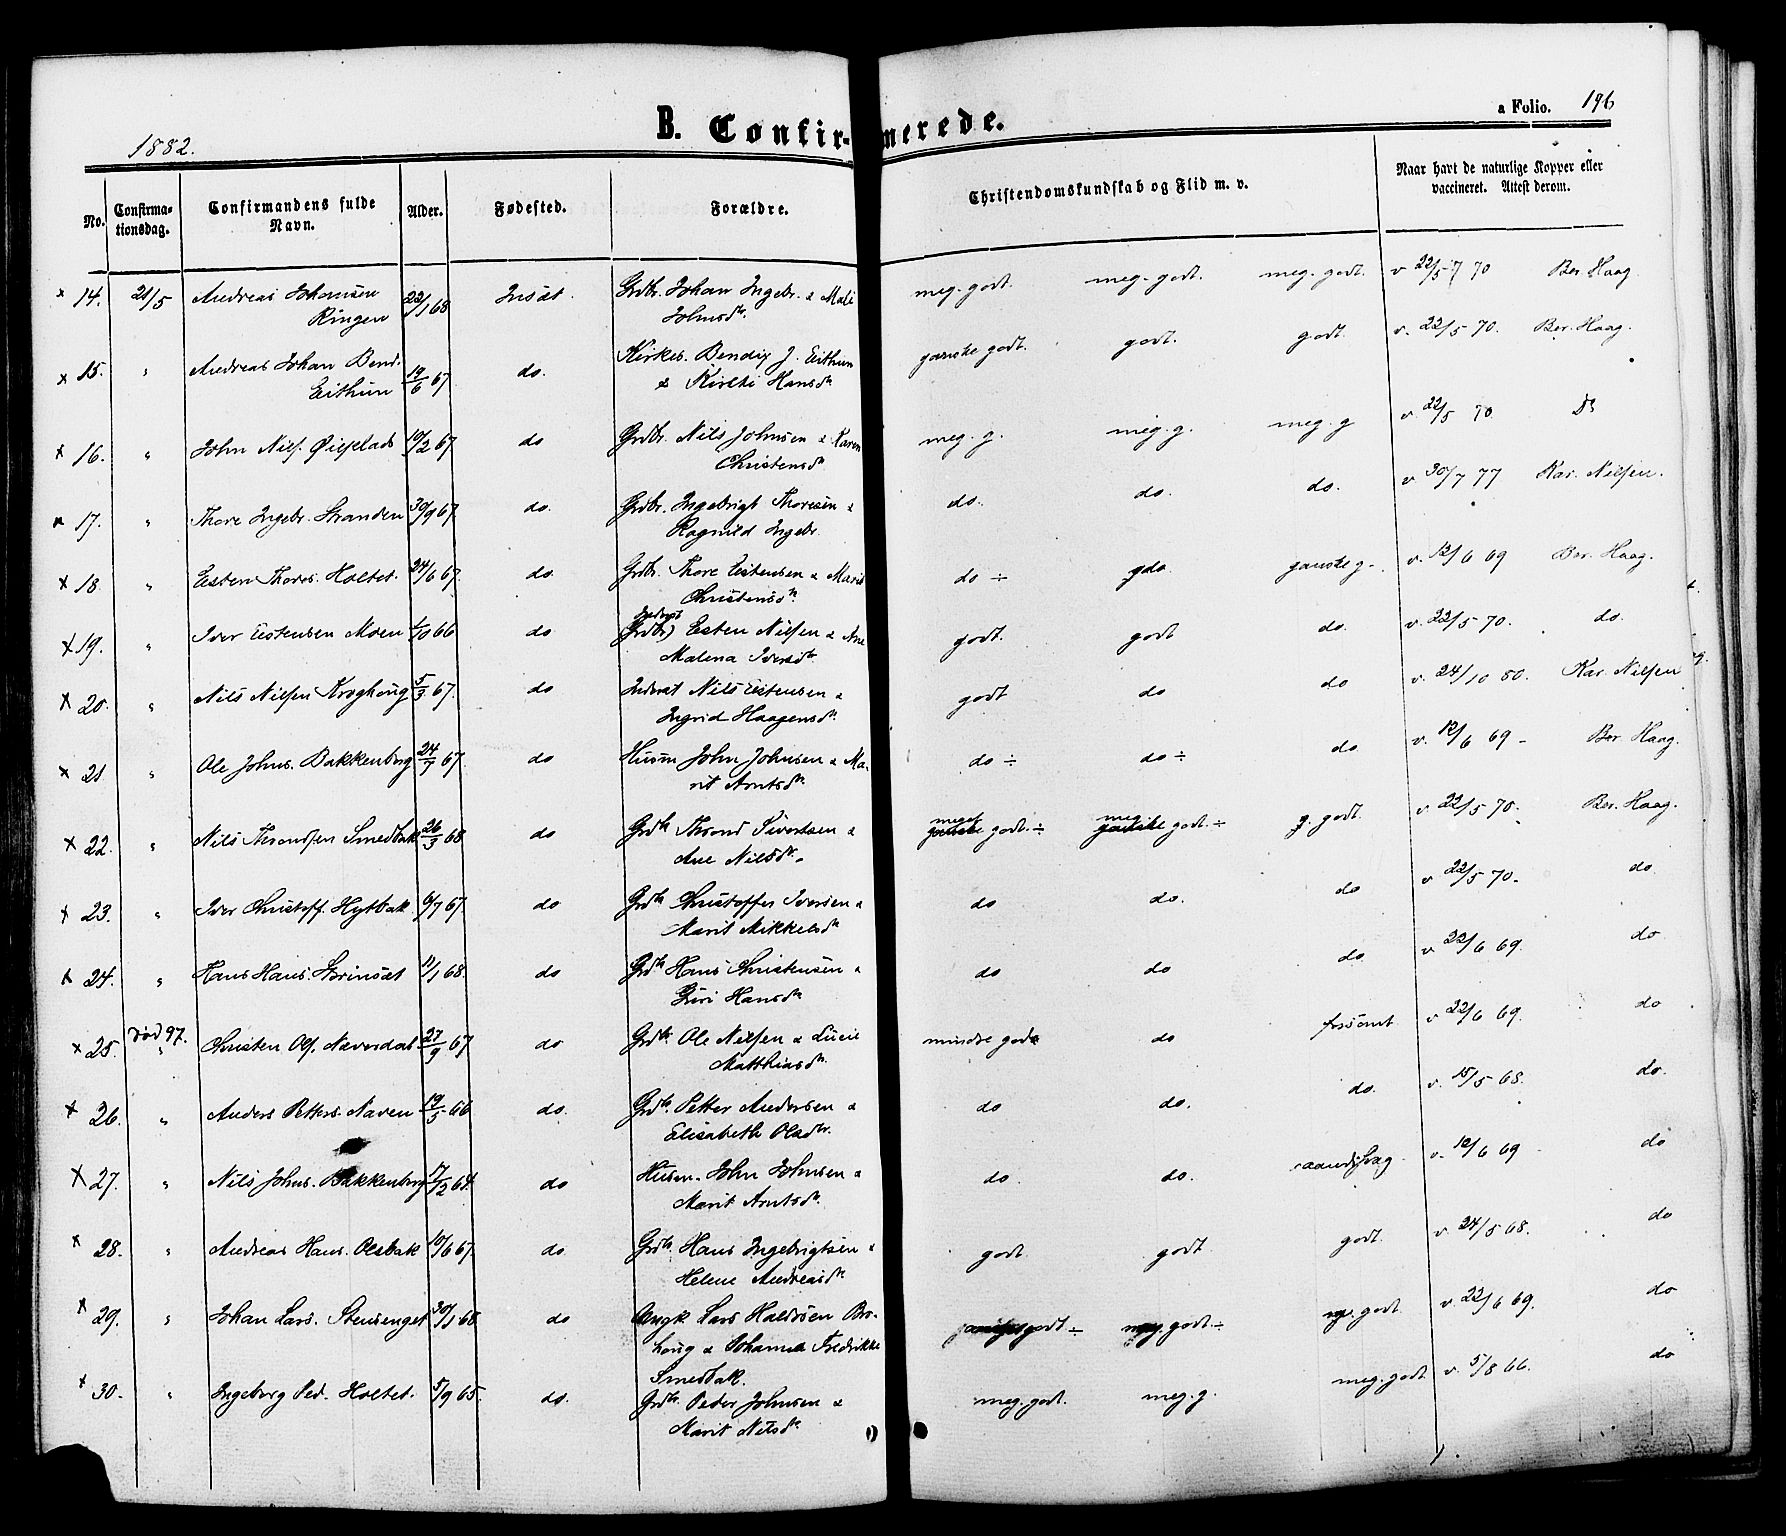 1882.
B. Confirmerede.
a Folio. 196
No. Confirmationsdag. Confirmandens fulde Navn. Alder. Fødested. Forældre. Christendomskundskab og Flid m. v. Naar havt de naturlige Kopper eller vaccineret. Attest derom.
x 14. 21/5 Andreas Johansen 22/1 68 Insæt. Grdbr. Johan Ingebr. & Mali meg. godt. meg. godt. meg. godt. v 22/5 70 Ber. Haag.
Ringen Johnsdtr.
x 15. " Andreas Johan Bend. 19/6 67 do. Kirkes. Bendix J. Eithun ganske godt. godt. godt. v. 22/5 70. Ber. Haag.
Eithun & Kirsti Hansdtr
x 16. " John Nils. Øiesplads 10/2 67 do Grdbr. Nils Johnsen & Karen meg. g. meg. g. meg. g v 22/5 70 Do
Christensdtr
x 17. " Thore Ingebr. Stranden 30/9 67. do. Grdbr. Ingebrigt Thoresen & do. do. do. v 30/7 77 Kar. Nilsen.
Ragnild Ingebr.
x 18. " Esten Thores. Holtet. 24/6 67. do. Grdbr. Thore Estensen & Marit do ÷ do ganske g. v. 12/6 69 Ber. Haag.
Christensdtr.
x 19. " Iver Estensen Moen 1/10 66 do Inderst (Grdbr) Esten Nilsen & Ane godt. godt do. v. 22/5 70. do.
Malena Iversdtr.
x 20. " Nils Nilsen Kroghoug 5/3 67. do Inderst Nils Estensen & godt do do v. 24/10 80. Kar. Nilsen
Ingrid Haagensdtr.
x 21 " Ole Johns. Bakkenberg 24/7 67. do Husm John Johnsen & Ma- do ÷ do ÷ do v. 12/6 69 - Ber Haag.
rit Arntsdtr
x 22. " Nils Thronsen Smedbak 26/3 68 do Grdbr Thrond Sivertsen & meget godt. ÷ meg. godt. ÷ g. godt. v 22/5 70. Ber. Haag.
Ane Nilsdtr.
x 23. " Iver Christoff. Hytbak 6/7 67. do Grdbr Christoffer Iversen & do do. do v 22/5 70. do.
Marit Mikkelsdtr
x 24. " Hans Hans. Storinsæt 11/1 68. do Grdbr Hans Christensen & do do do v 22/6 69. do
Guri Hansdtr
x 25. død 97. " Christen Ols. Næverdal 27/9 67 do Grdbr. Ole Nilsen & Lucie mindre godt do forsømt v 22/6 69. do
Matthiasdtr.
x 26. " Anders Petters. Naven 19/5 66 do. Grdbr. Petter Andersen & do do. do. v. 15/5 68. do.
Elisabeth Olsdtr.
x 27. " Nils Johns. Bakkenberg 17/2 64. do Husm. John Johnsen & do. do. aandssvag v. 12/6 69 do
Marit Arntsdtr.
x 28. " Andreas Hans. Olsbak 10/6 67. do Grdbr. Hans Ingebrigtsen & godt. godt. godt. v 24/5 68. do
Helene Andreasdtr
x 29. " Johan Lars. Stensenget 30/1 68. do Ungk Lars Haldosen Bro- godt ÷ meg. godt. ÷ meg. godt. v. 22/6 69. do
houg & Johanna Fredrikke
Smedbak.
x 30. " Ingeborg Ped. Holtet. 5/9 65. do. Grdbr. Peder Johnsen & meg. godt. meg. g. meg. godt v. 5/8 66. do
Marit Nilsdtr